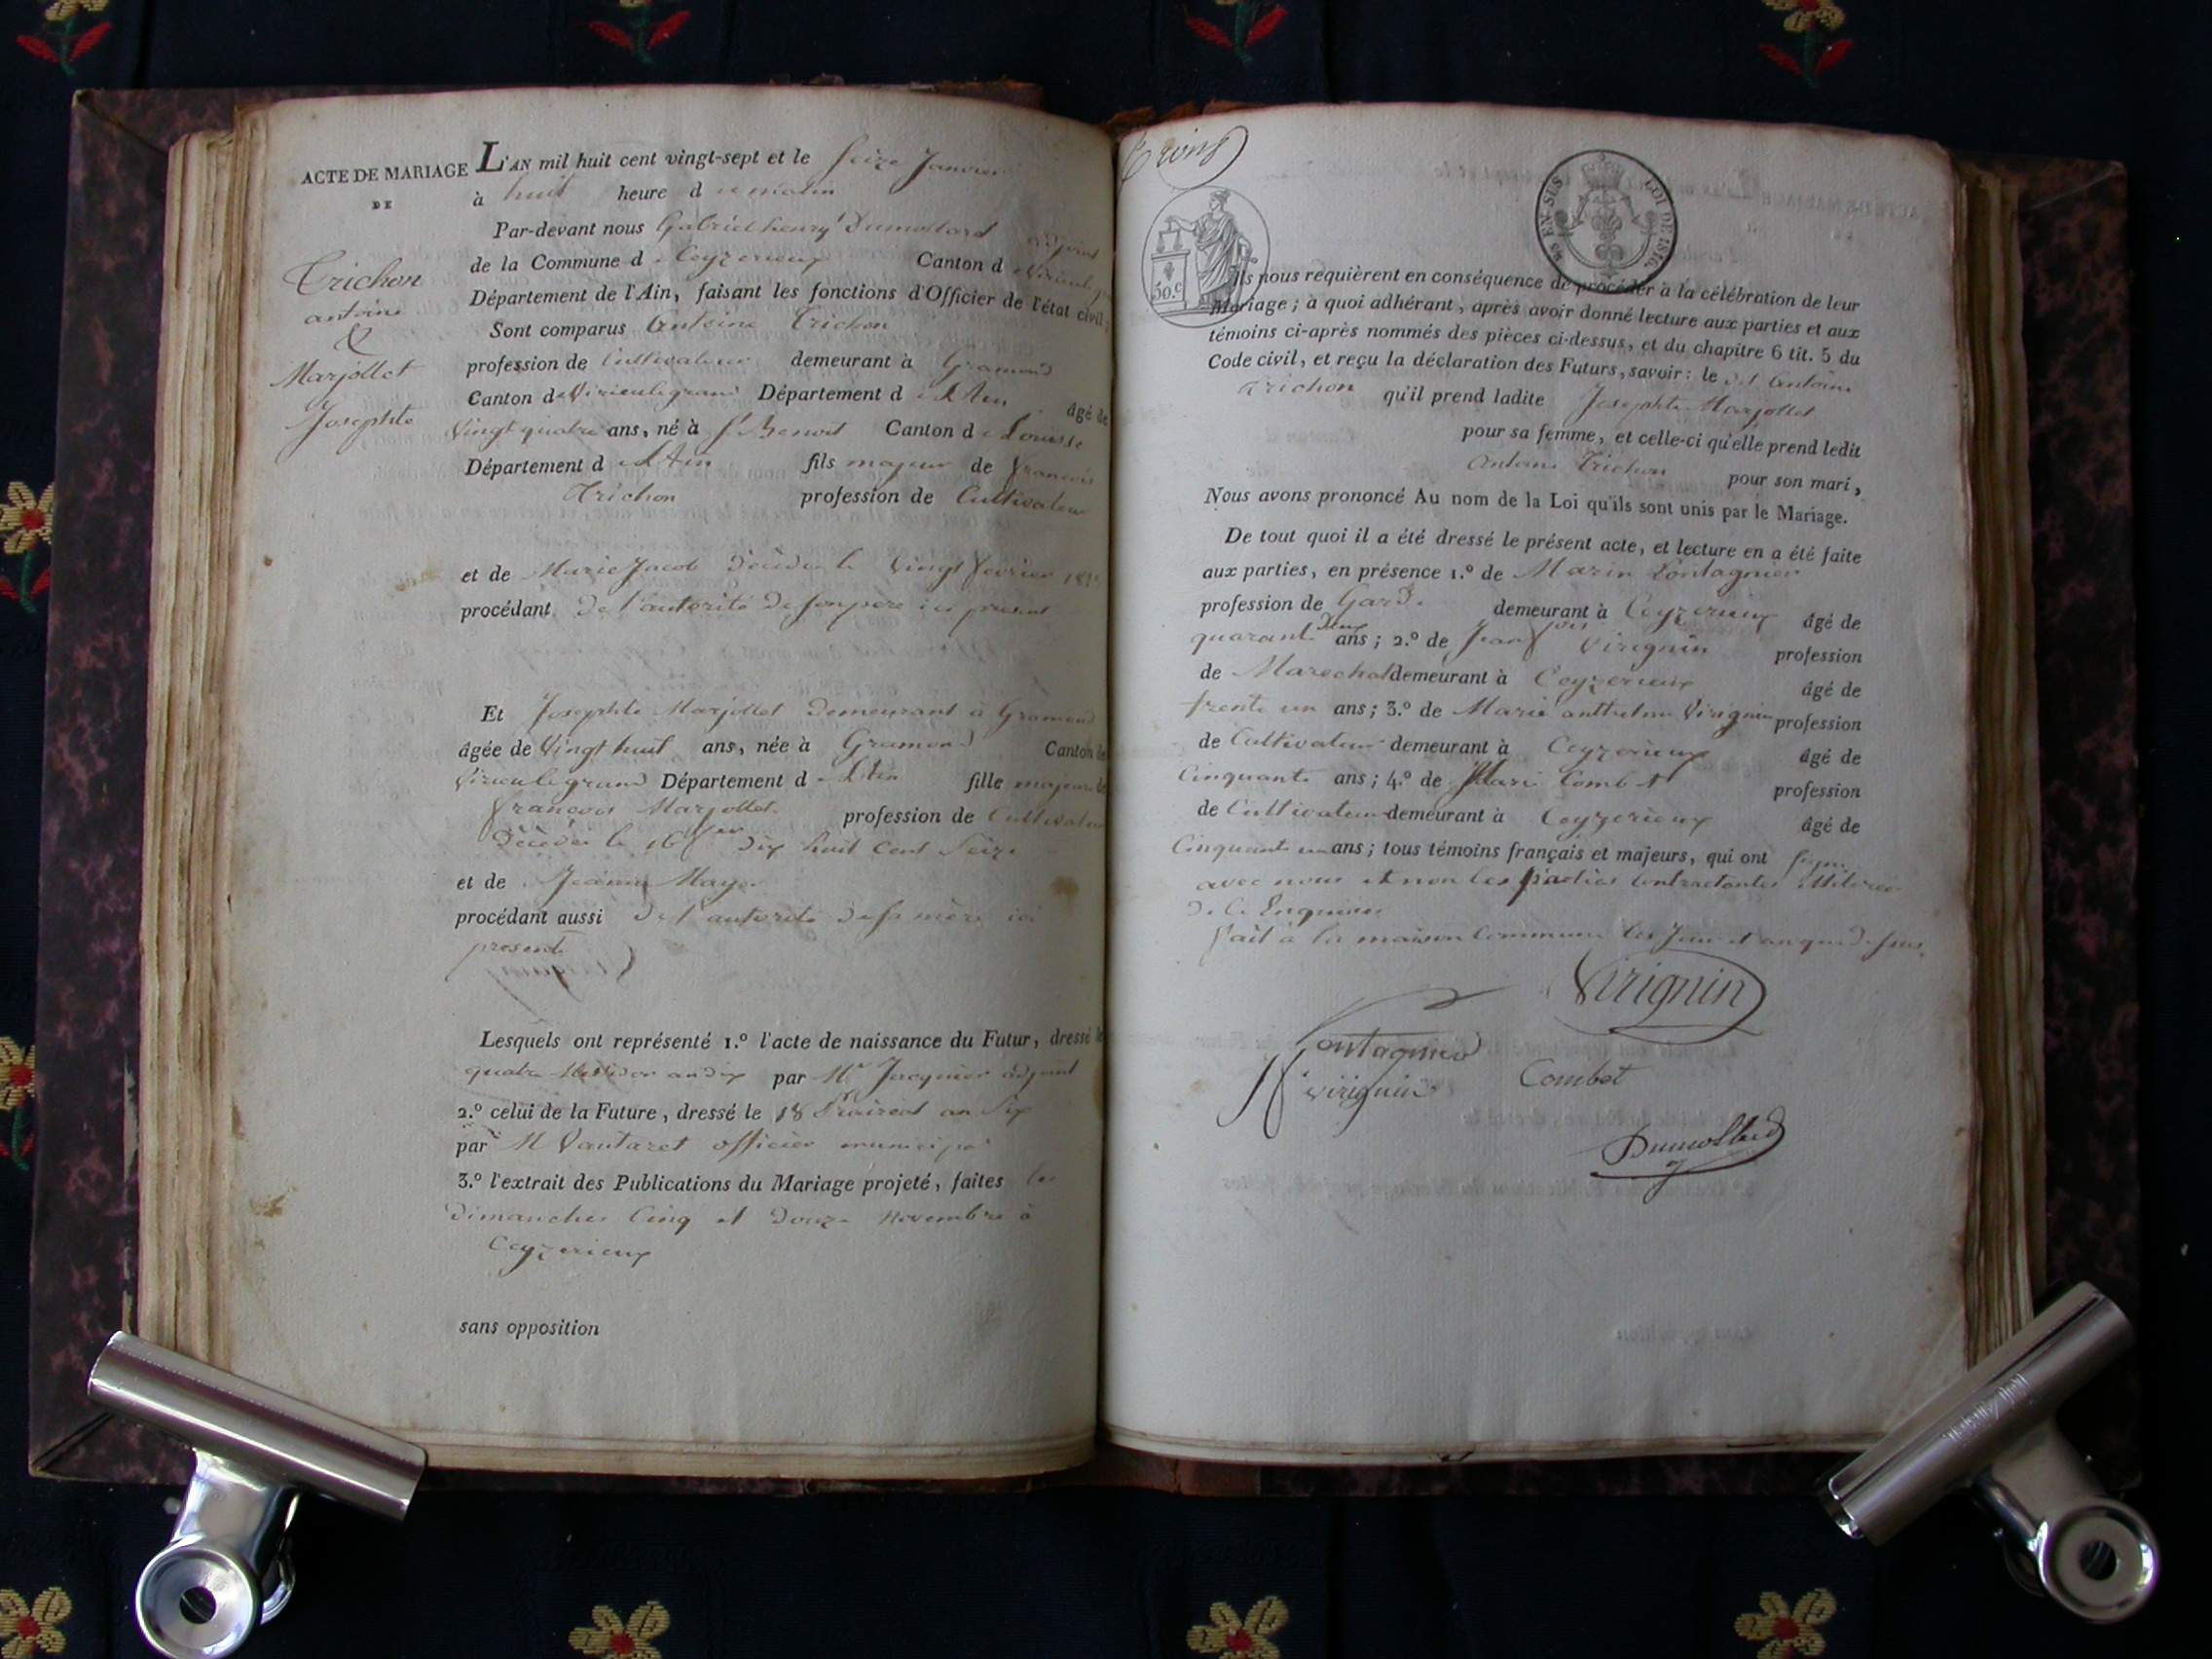 ACTE DE MARIAGE L'AN mil huit cent vingt-sept et le seize Janvier
DE
à huit heure d u matin
Par-devant nous Gabriel henry Dumollard adjoint
de la Commune d e Ceyzerieux Canton d e Virieulegrand
Département de l'Ain, faisant les fonctions d'Officier de l'état civil;
Trichon
antoine
&
Marjollet
Josephte
Sont comparus Antoine Trichon
profession de Cultivateur demeurant à Gramond
Canton de Virieulegrand Département d e L'Ain âgé de
Vingt quatre ans, né à St Benoit Canton d e
Département d e L'Ain fils majeur de francois
Trichon profession de Cultivateur
et de Marie Jacob décédée le Vingt fevrier
procédant de l'autorité de son pere ici present
Et Josephte Marjollet demeurant à Gramond
âgée de Vingt huit ans, née à Gramond Canton de
Virieulegrand Département d e L'Ain fille majeure de
francois Marjollet profession de Cultivateur
décédé le 16 dix huit cent seize
et de
procédant aussi de l'autorité de sa mère ici
presente
Lesquels ont représenté 1.º l'acte de naissance du Futur, dressé le
quatre Messidor an dix par Mr Jacquier adjoint
2.º celui de la Future, dressé le 18 Prairial an Six
par M Vautaret officier municipal
3.º l'extrait des Publications du Mariage projeté, faites les
dimanches Cinq et douze Novembre à
Ceyzerieux
sans opposition
MS EN SES LOI DE 1816.
50.c
Ils nous requièrent en conséquence de procéder à la célébration de leur
Mariage; à quoi adhérant, après avoir donné lecture aux parties et aux
témoins ci-après nommés des pièces ci-dessus, et du chapitre 6 tit. 5 du
Code civil, et reçu la déclaration des Futurs, savoir: le dit Antoine
Trichon qu'il prend ladite Josephte Marjollet
pour sa femme, et celle-ci qu'elle prend ledit
Antoine Trichon pour son mari,
Nous avons prononcé Au nom de la Loi qu'ils sont unis par le Mariage.
De tout quoi il a été dressé le présent acte, et lecture en a été faite
aux parties, en présence 1.º de Marin Pontagnier
profession de Garde demeurant à Ceyzerieux âgé de
quarante deux ans; 2.º de Jean fois Virignin profession
de Marechal demeurant à Ceyzerieux âgé de
trente un ans; 3.º de Marie anthelme Virignin profession
de Cultivateur demeurant à Ceyzerieux âgé de
Cinquante ans; 4.º de Marie Combet profession
de Cultivateur demeurant à Ceyzerieux âgé de
Cinquante un ans; tous témoins français et majeurs, qui ont signé
avec nous et non les parties Contractantes
de ce Enquises
fait à la maison Commune les Jour et an que dessus
Virignin
Pontagnier
Virignin Combet
Dumollard